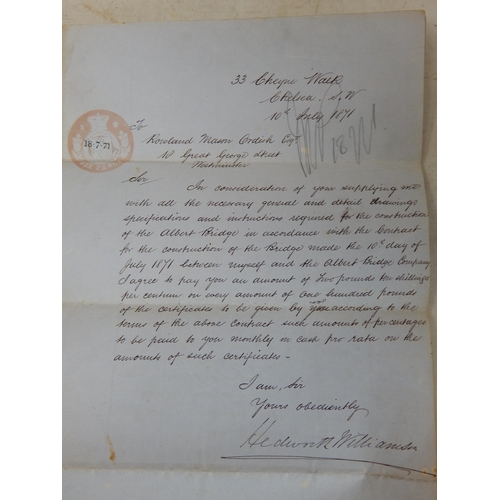 33 Cheyne Walk
Chelsea. S.W
10th July 1871
18·7·71
To
Rowland Mason Ordish Esqre
18 Great George Street
Westminster
Sir
In consideration of your supplying me
with all the necessary general and detail drawings
specifications and instructions required for the construction
of the Albert Bridge in accordance with the Contract
for the construction of the Bridge made the 10th day of
July 1871 between myself and the Albert Bridge Company
I agree to pay you an amount of Two pounds ten shillings
per centum on every amount of One hundred pounds
of the certificates to be given by according to the
terms of the above Contract such amounts of percentages
to be paid to you monthly in cash pro rata on the
amounts of such certificates -
I am, Sir
Yours obediently
Hedworth Williamson